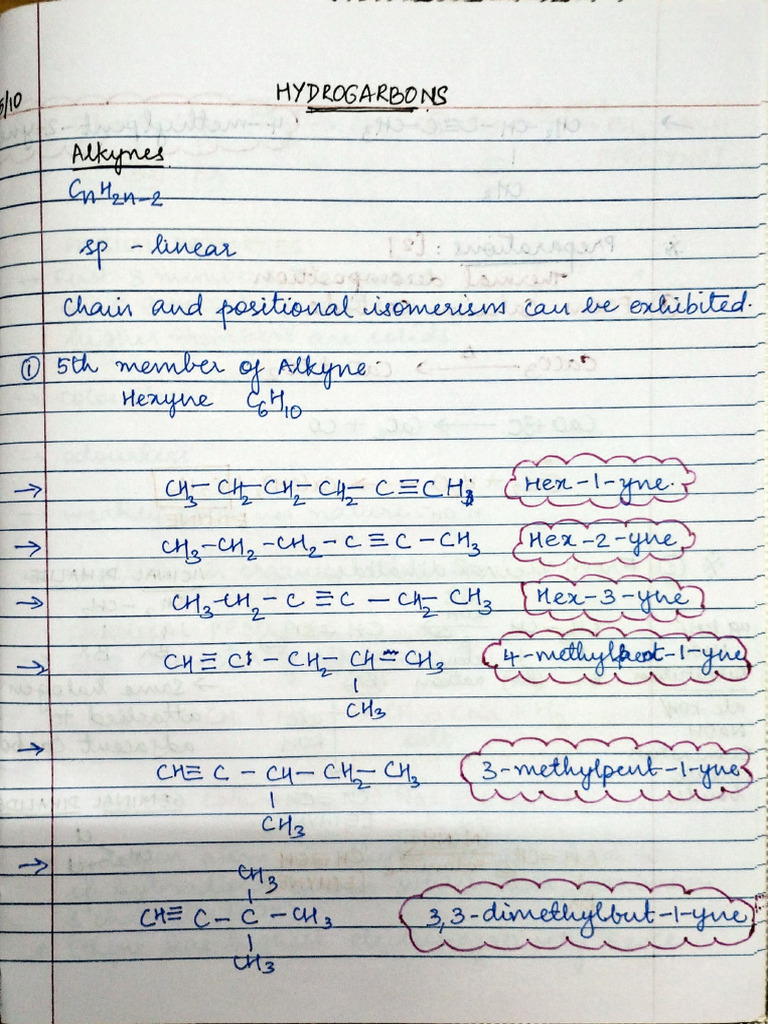 5/10
HYDROGARBONS
Alkynes
CnH2n-2
sp - linear
Chain and positional isomerism can be exhibited.
① 5th member of Alkyne
Hexyne C6H10
→ CH3-CH2-CH2-CH2-C≡CH Hex-1-yne.
→ CH3-CH2-CH2-C≡C-CH3 Hex-2-yne
→ CH3-CH2-C≡C-CH2-CH3 Hex-3-yne
→ CH≡C-CH2-CH-CH3 4-methylpent-1-yne
|
CH3
→
CH≡C-CH-CH2-CH3 3-methylpent-1-yne
|
CH3
→ CH3
|
CH≡C-C-CH3 3,3-dimethylbut-1-yne
|
CH3